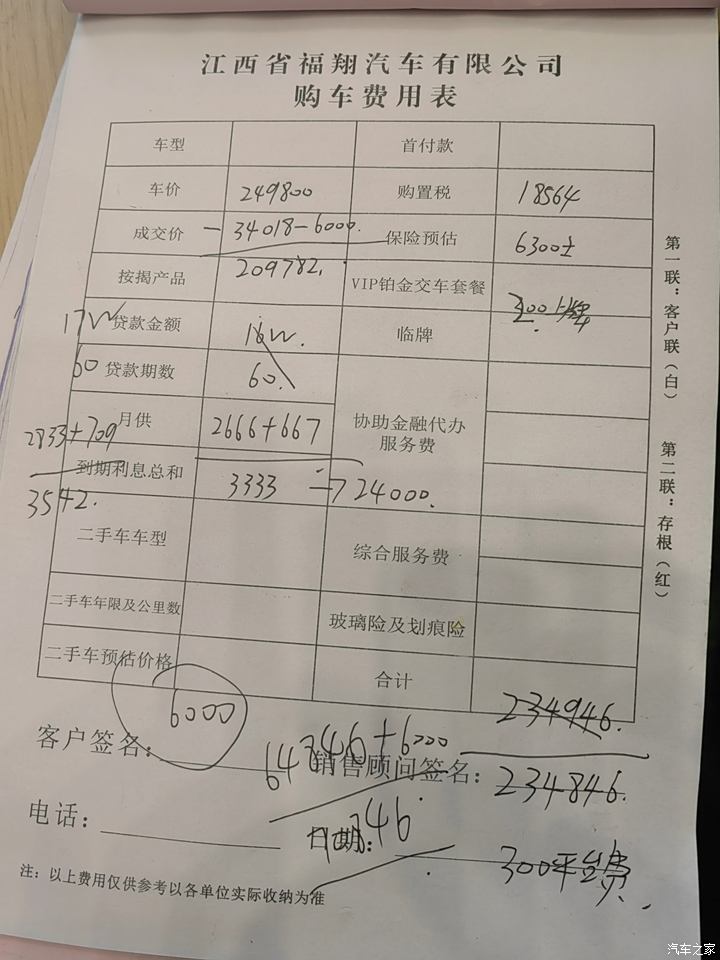 江西省福翔汽车有限公司
购车费用表
车型 首付款
车价 249800 购置税 18564
成交价 -34018-6000. 保险预估 6300±
按揭产品 209782. VIP铂金交车套餐
300上牌
17W 贷款金额 16W. 临牌
60 贷款期数 60.
月供 2666+667 协助金融代办
服务费
2833+709
到期利息总和 3333 → 24000.
3542.
二手车车型 综合服务费
二手车年限及公里数 玻璃险及划痕险
二手车预估价格 合计
6000 234946.
客户签名: 64846+6000 销售顾问签名: 234846.
电话: 日期: 46.
300平台费.
注:以上费用仅供参考以各单位实际收纳为准
第一联:客户联(白) 第二联:存根(红)
汽车之家